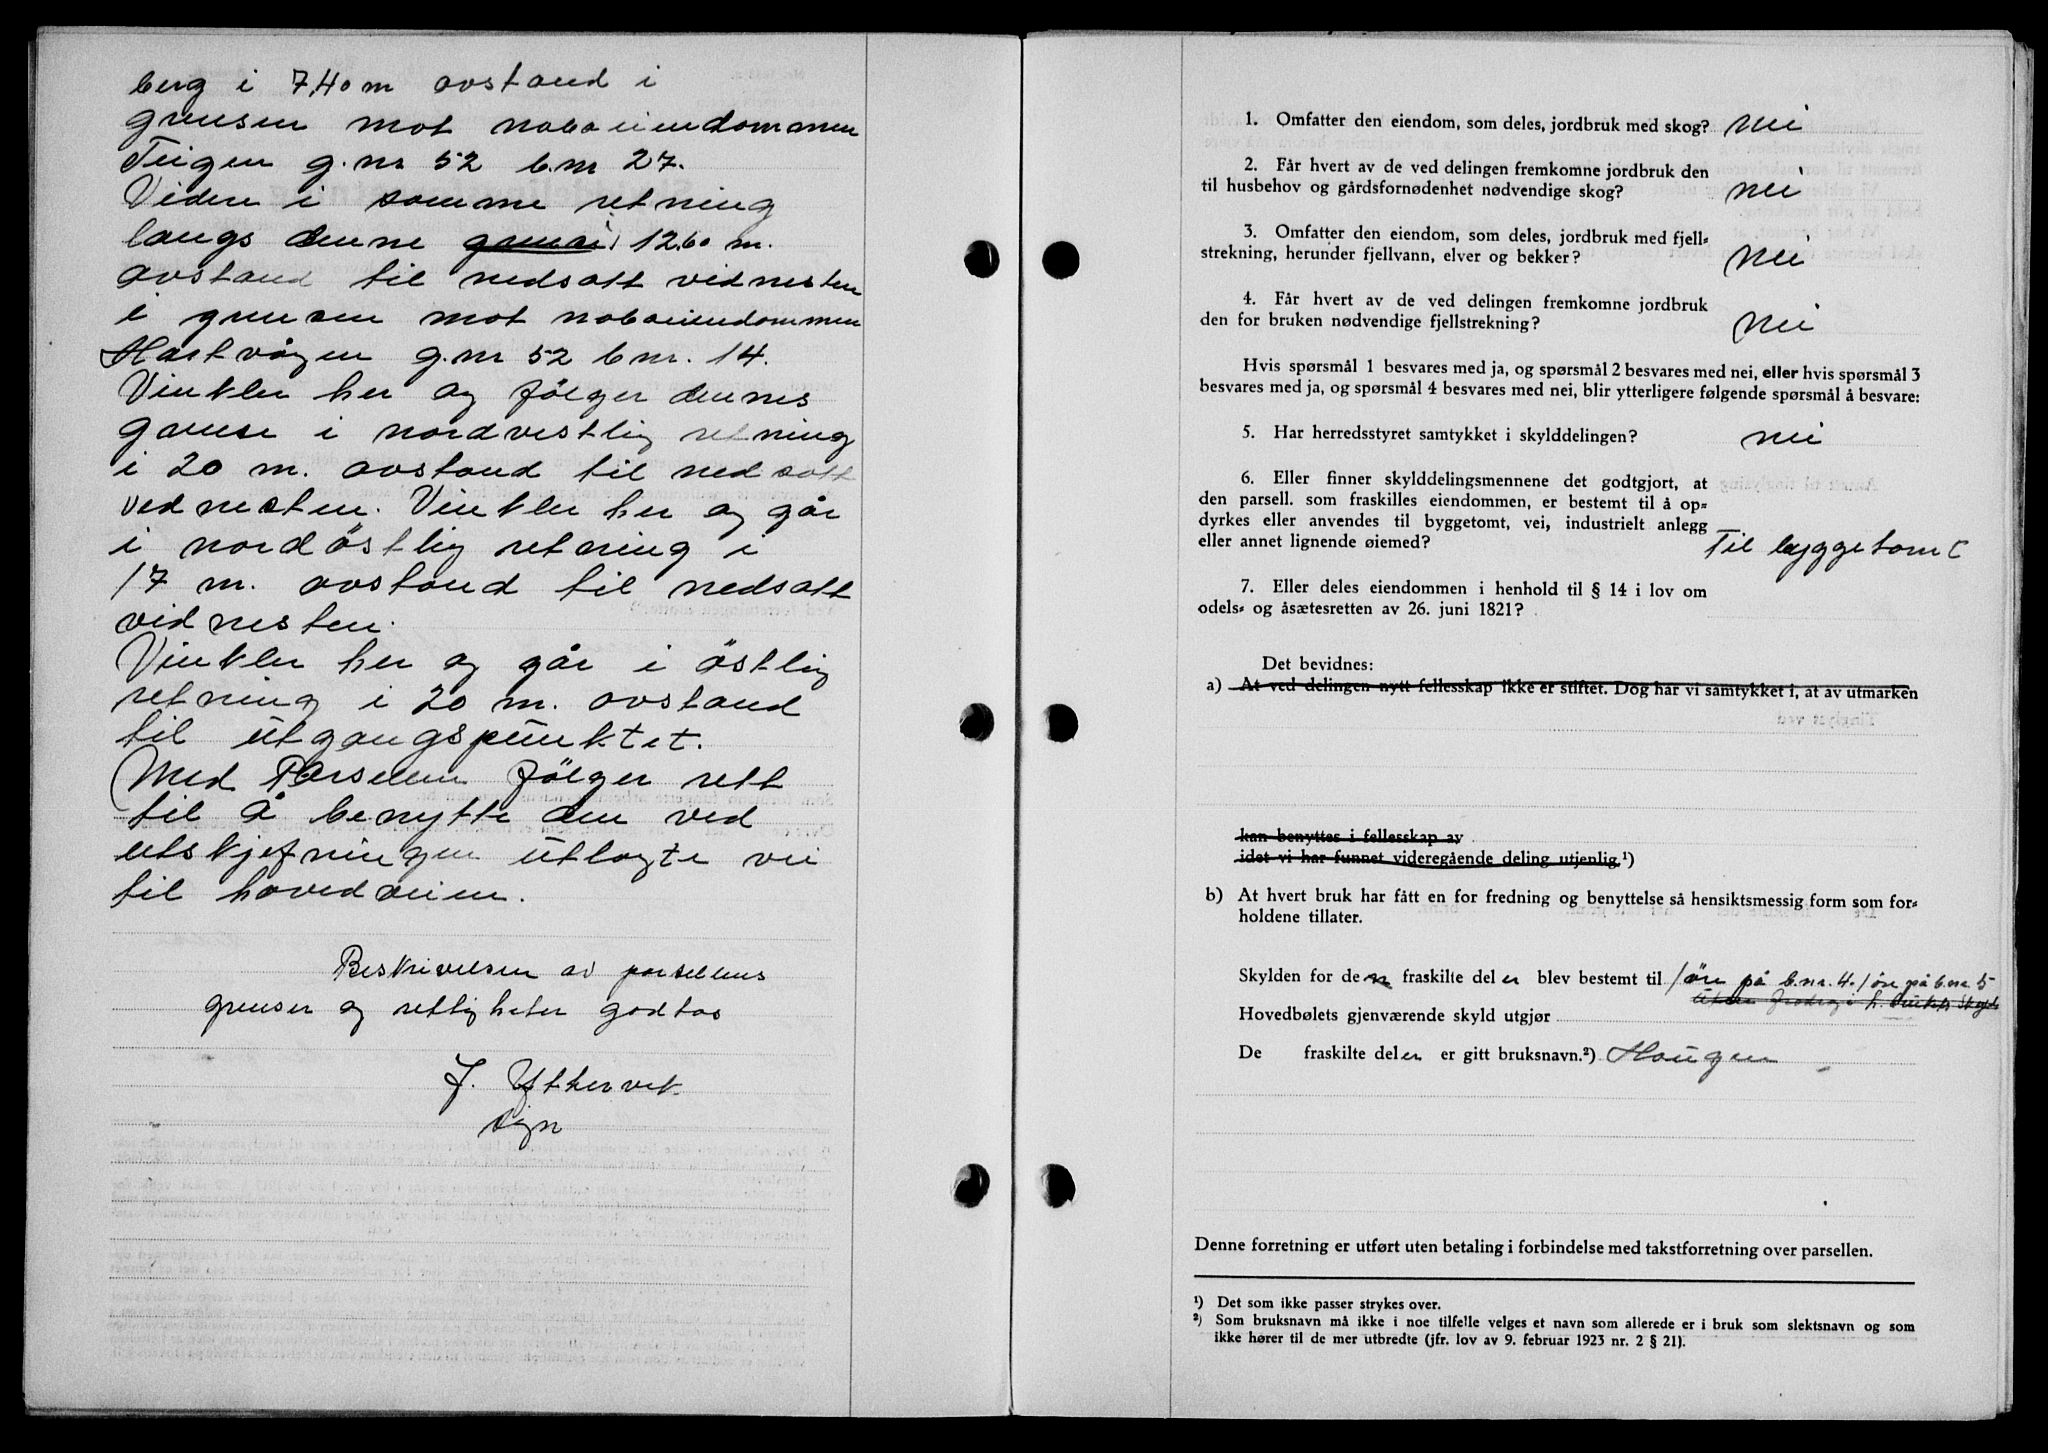 berg i 7,40 m avstand i
grensen mot naboeiendommen
Teigen g.nr 52 b.nr 27.
Videre i samme retning
langs denne grense i 12.60 m.
avstand til nedsatt vidnesten
i grensen mot naboeiendommen
Hartvågen g.nr 52 b nr. 14.
Vinkler her og følger dennes
grense i nordvestlig retning
i 20 m. avstand til nedsatt
vednesten. Vinkler her og går
i nordöstlig retning i
17 m. avstand til nedsatt
vidnesten.
Vinkler her og går i östlig
retning i 20 m. avstand
til utgangspunktet.
Med Parsellen følger rett
til å benytte den ved
utskjefningen utlagte vei
til hovedveien.
Beskrivelsen av parsellens
grenser og rettigheter godtas
J. Yttervik
sign
1. Omfatter den eiendom, som deles, jordbruk med skog? nei
2. Får hvert av de ved delingen fremkomne jordbruk den
til husbehov og gårdsfornødenhet nødvendige skog? nei
3. Omfatter den eiendom, som deles, jordbruk med fjell=
strekning, herunder fjellvann, elver og bekker? nei
4. Får hvert av de ved delingen fremkomne jordbruk
den for bruken nødvendige fjellstrekning? nei
Hvis spørsmål 1 besvares med ja, og spørsmål 2 besvares med nei, eller hvis spørsmål 3
besvares med ja, og spørsmål 4 besvares med nei, blir ytterligere følgende spørsmål å besvare:
5. Har herredsstyret samtykket i skylddelingen? nei
6. Eller finner skylddelingsmennene det godtgjort, at
den parsell. som fraskilles eiendommen, er bestemt til å op=
dyrkes eller anvendes til byggetomt, vei, industrielt anlegg
eller annet lignende øiemed? Til byggetomt
7. Eller deles eiendommen i henhold til § 14 i lov om
odels= og åsætesretten av 26. juni 1821?
Det bevidnes:
a) At ved delingen nytt fellesskap ikke er stiftet. Dog har vi samtykket i, at av utmarken
kan benyttes i fellesskap av
idet vi har funnet videregående deling utjenlig.¹)
b) At hvert bruk har fått en for fredning og benyttelse så hensiktsmessig form som for=
holdene tillater.
Skylden for den fraskilte del er blev bestemt til 1 øre på b.nr. 4. 1 øre på b.nr 5
Hovedbølets gjenværende skyld utgjør
De fraskilte deler er gitt bruksnavn.²) Haugen
Denne forretning er utført uten betaling i forbindelse med takstforretning over parsellen.
¹) Det som ikke passer strykes over.
²) Som bruksnavn må ikke i noe tilfelle velges et navn som allerede er i bruk som slektsnavn og som
ikke hører til de mer utbredte (jfr. lov av 9. februar 1923 nr. 2 § 21).